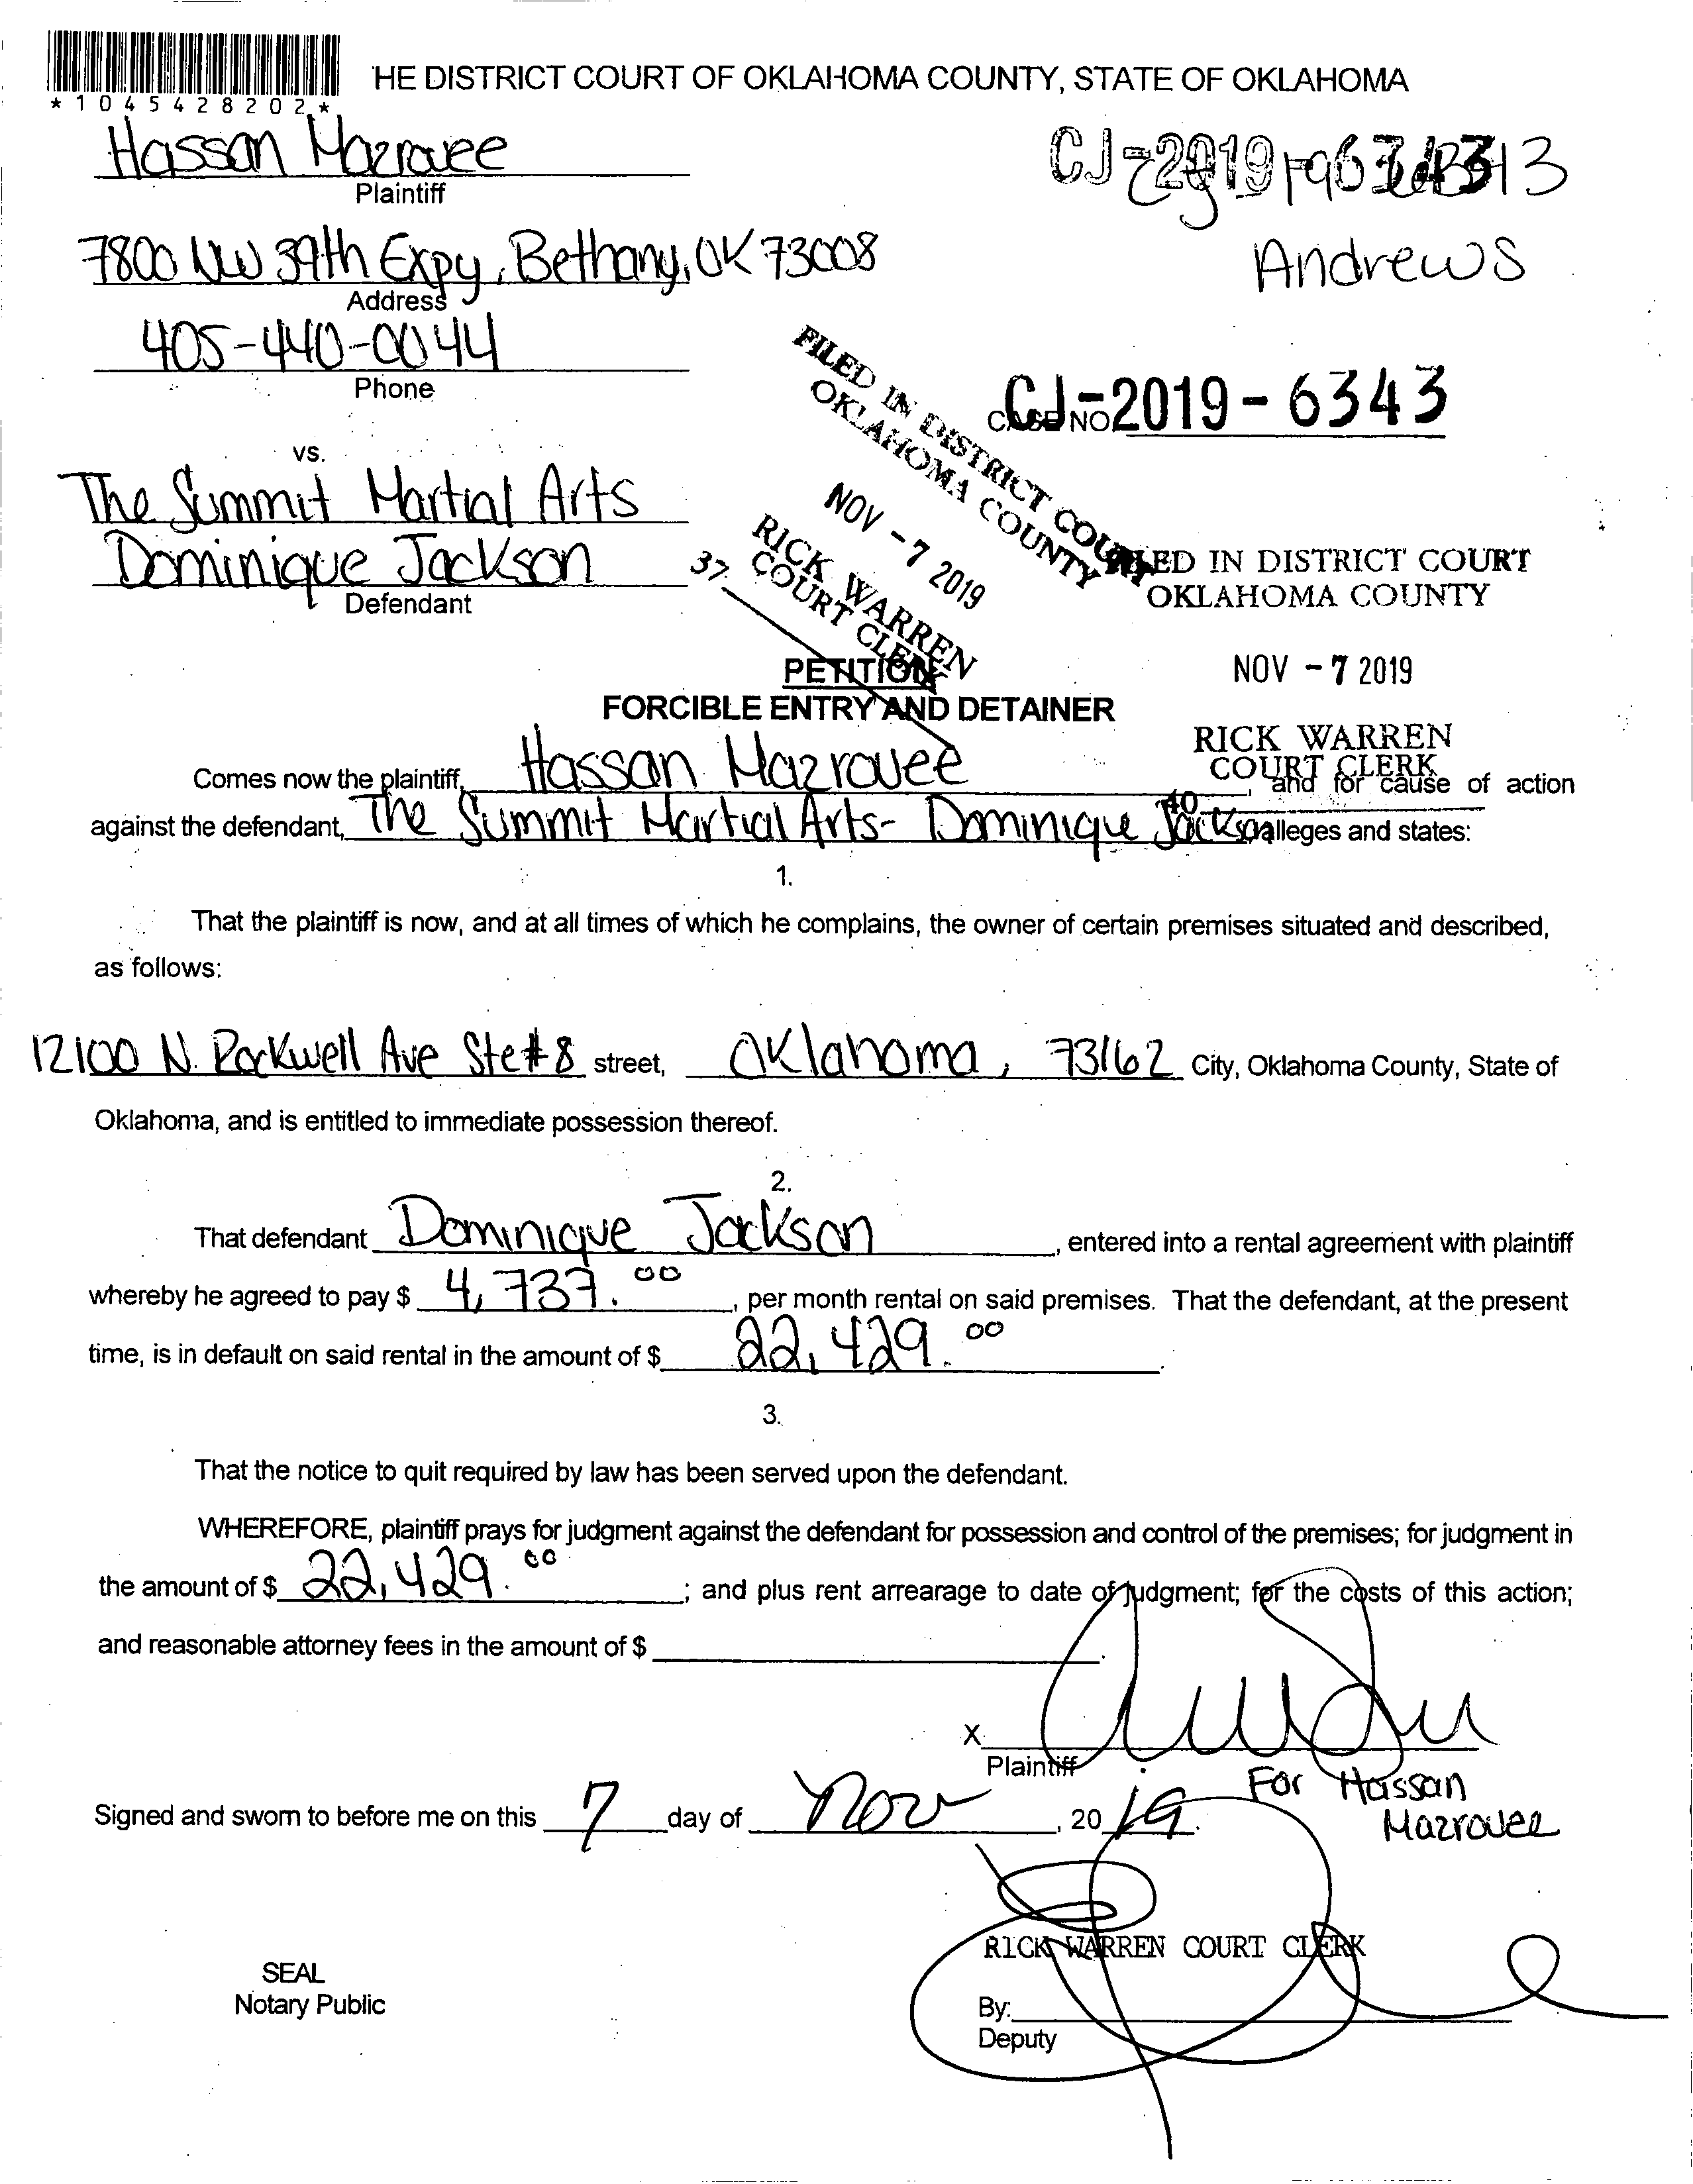 *1045428202*
HE DISTRICT COURT OF OKLAHOMA COUNTY, STATE OF OKLAHOMA
Hassan Mazrouee
Plaintiff
CJ-2019-6343
Andrews
7800 NW 39th Expy, Bethany, OK 73008
Address
405-440-0044
Phone
CASE NO. CJ-2019-6343
vs.
The Summit Martial Arts
Dominique Jackson
Defendant
FILED IN DISTRICT COURT
OKLAHOMA COUNTY
NOV -7 2019
RICK WARREN
COURT CLERK
37
FILED IN DISTRICT COURT
OKLAHOMA COUNTY
NOV -7 2019
RICK WARREN
COURT CLERK
40
PETITION
FORCIBLE ENTRY AND DETAINER
Comes now the plaintiff, Hassan Mazrouee, and for cause of action
against the defendant, The Summit Martial Arts- Dominique Jackson alleges and states:
1.
That the plaintiff is now, and at all times of which he complains, the owner of certain premises situated and described,
as follows:
12100 N. Rockwell Ave Ste#8 street, Oklahoma, 73162 City, Oklahoma County, State of
Oklahoma, and is entitled to immediate possession thereof.
2.
That defendant Dominique Jackson, entered into a rental agreement with plaintiff
whereby he agreed to pay $ 4,737.00, per month rental on said premises. That the defendant, at the present
time, is in default on said rental in the amount of $ 22,429.00.
3.
That the notice to quit required by law has been served upon the defendant.
WHEREFORE, plaintiff prays for judgment against the defendant for possession and control of the premises; for judgment in
the amount of $ 22,429.00; and plus rent arrearage to date of judgment; for the costs of this action;
and reasonable attorney fees in the amount of $
X
Plaintiff
For Hassan
Mazrouee
Signed and sworn to before me on this 7 day of Nov, 2019.
RICK WARREN COURT CLERK
SEAL
Notary Public
By:
Deputy